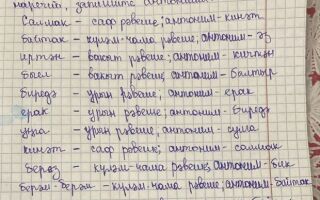 наречий, запишите антонимы
Салмак - саф рәвеше; антоним - кинәт
байтак - күләм-чама рәвеше; антоним - әз
иртән - вакыт рәвеше; антоним - кичтән
быел - вакыт рәвеше; антоним - былтыр
биредә - урын рәвеше; антоним - ерак
ерак - урын рәвеше; антоним - биредә
уңга - урын рәвеше; антоним - сулга
кинәт - саф рәвеше; антоним - салмак
бераз - күләм-чама рәвеше; антоним - бик
берәм-берәм - күләм-чама рәвеше; антоним - байтак